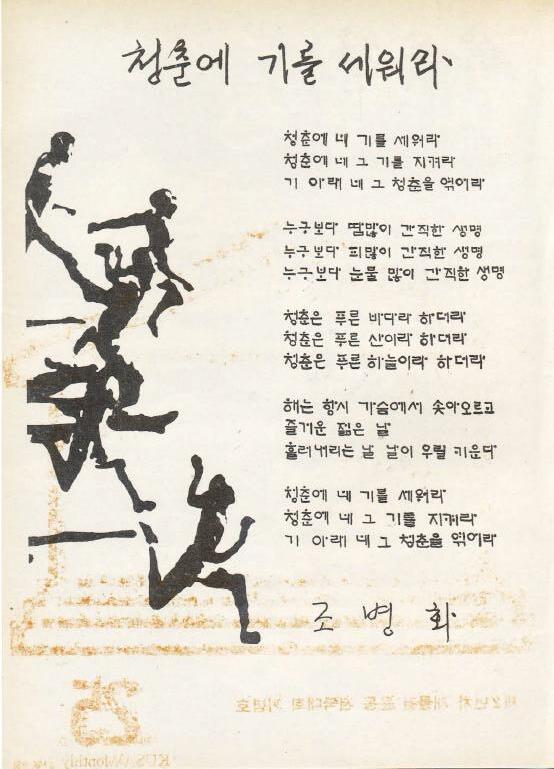 청춘에 기를 세워라
청춘에 네 기를 세워라
청춘에 네 그 기를 지켜라
기 아래 네 그 청춘을 엮어라
누구보다 땀많이 간직한 생명
누구보다 피많이 간직한 생명
누구보다 눈물 많이 간직한 생명
청춘은 푸른 바다라 하더라
청춘은 푸른 산이라 하더라
청춘은 푸른 하늘이라 하더라
해는 항시 가슴에서 솟아오르고
즐거운 젊은 날
흘러내리는 날 날이 우릴 키운다
청춘에 네 기를 세워라
청춘에 네 그 기를 지켜라
기 아래 네 그 청춘을 엮어라
조병화
25